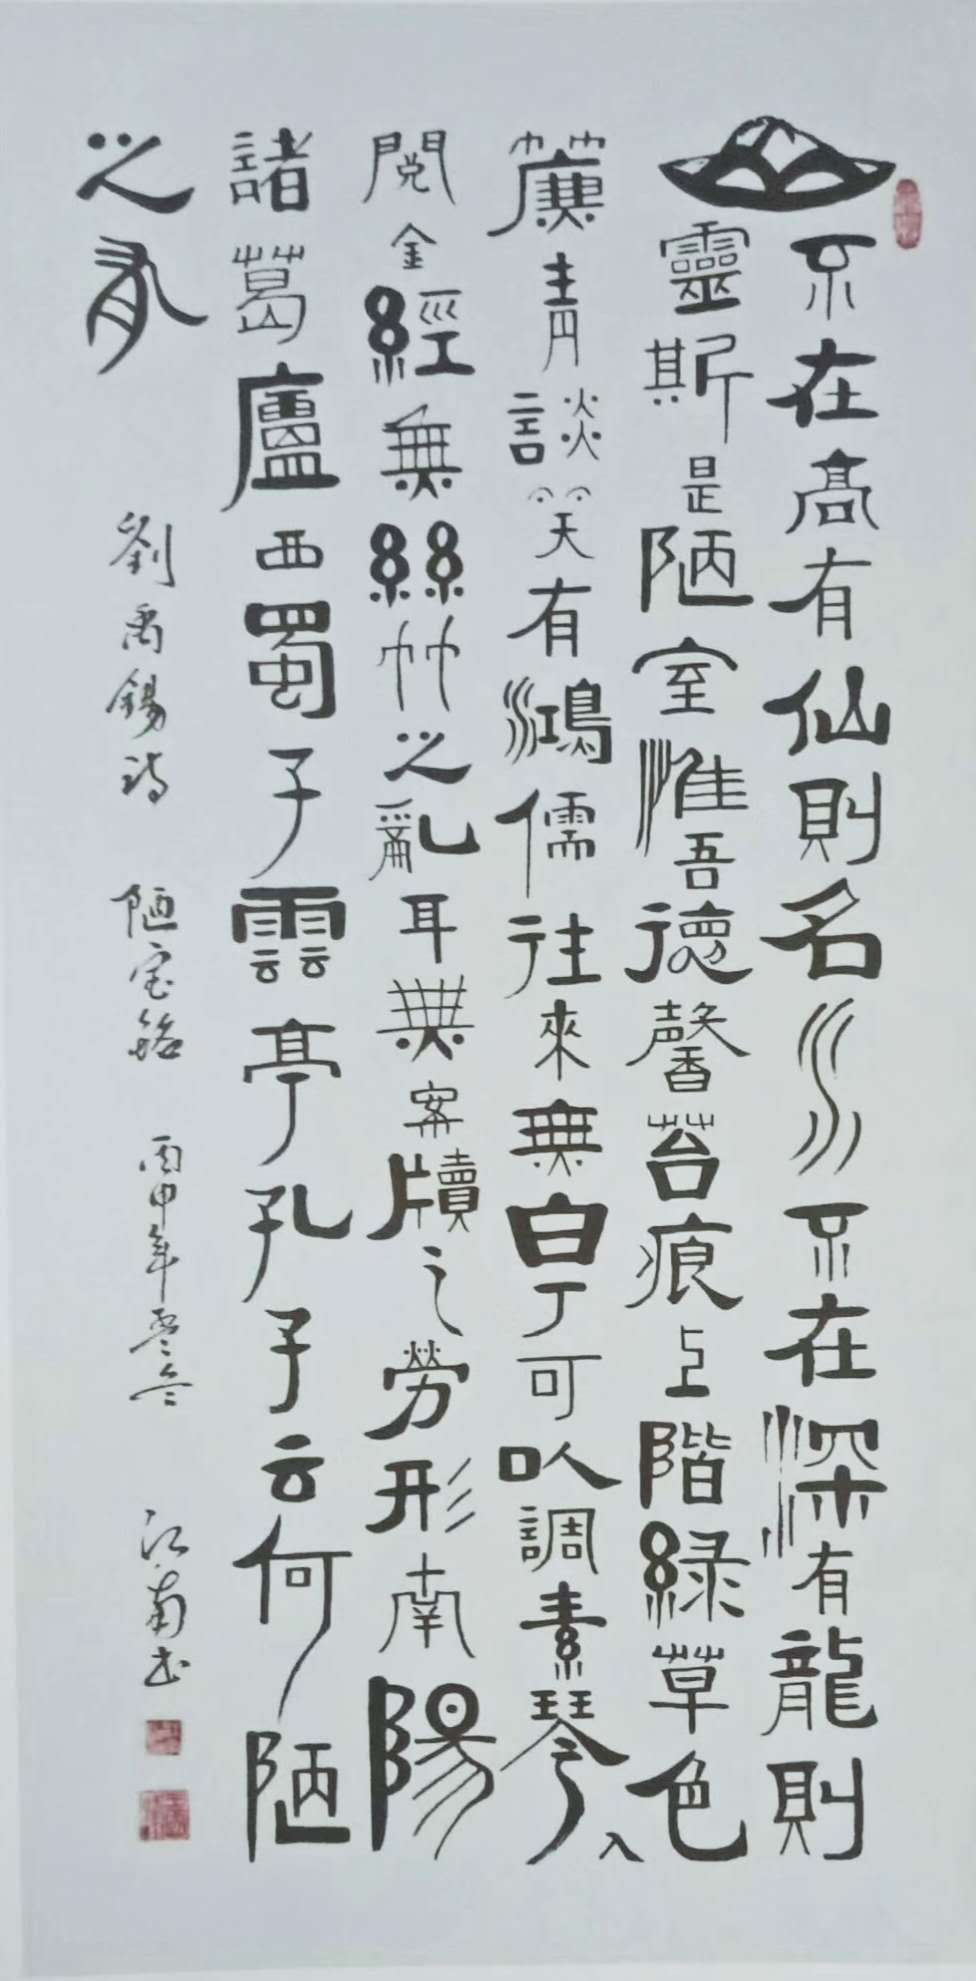 山不在高有仙則名水不在深有龍則
靈斯是陋室惟吾德馨苔痕上階綠草色入
簾青談笑有鴻儒往來無白丁可以調素琴
閱金經無絲竹之亂耳無案牘之勞形南陽
諸葛廬西蜀子雲亭孔子云何陋
之有
劉禹錫詩 陋室銘 丙申年冬 江南书